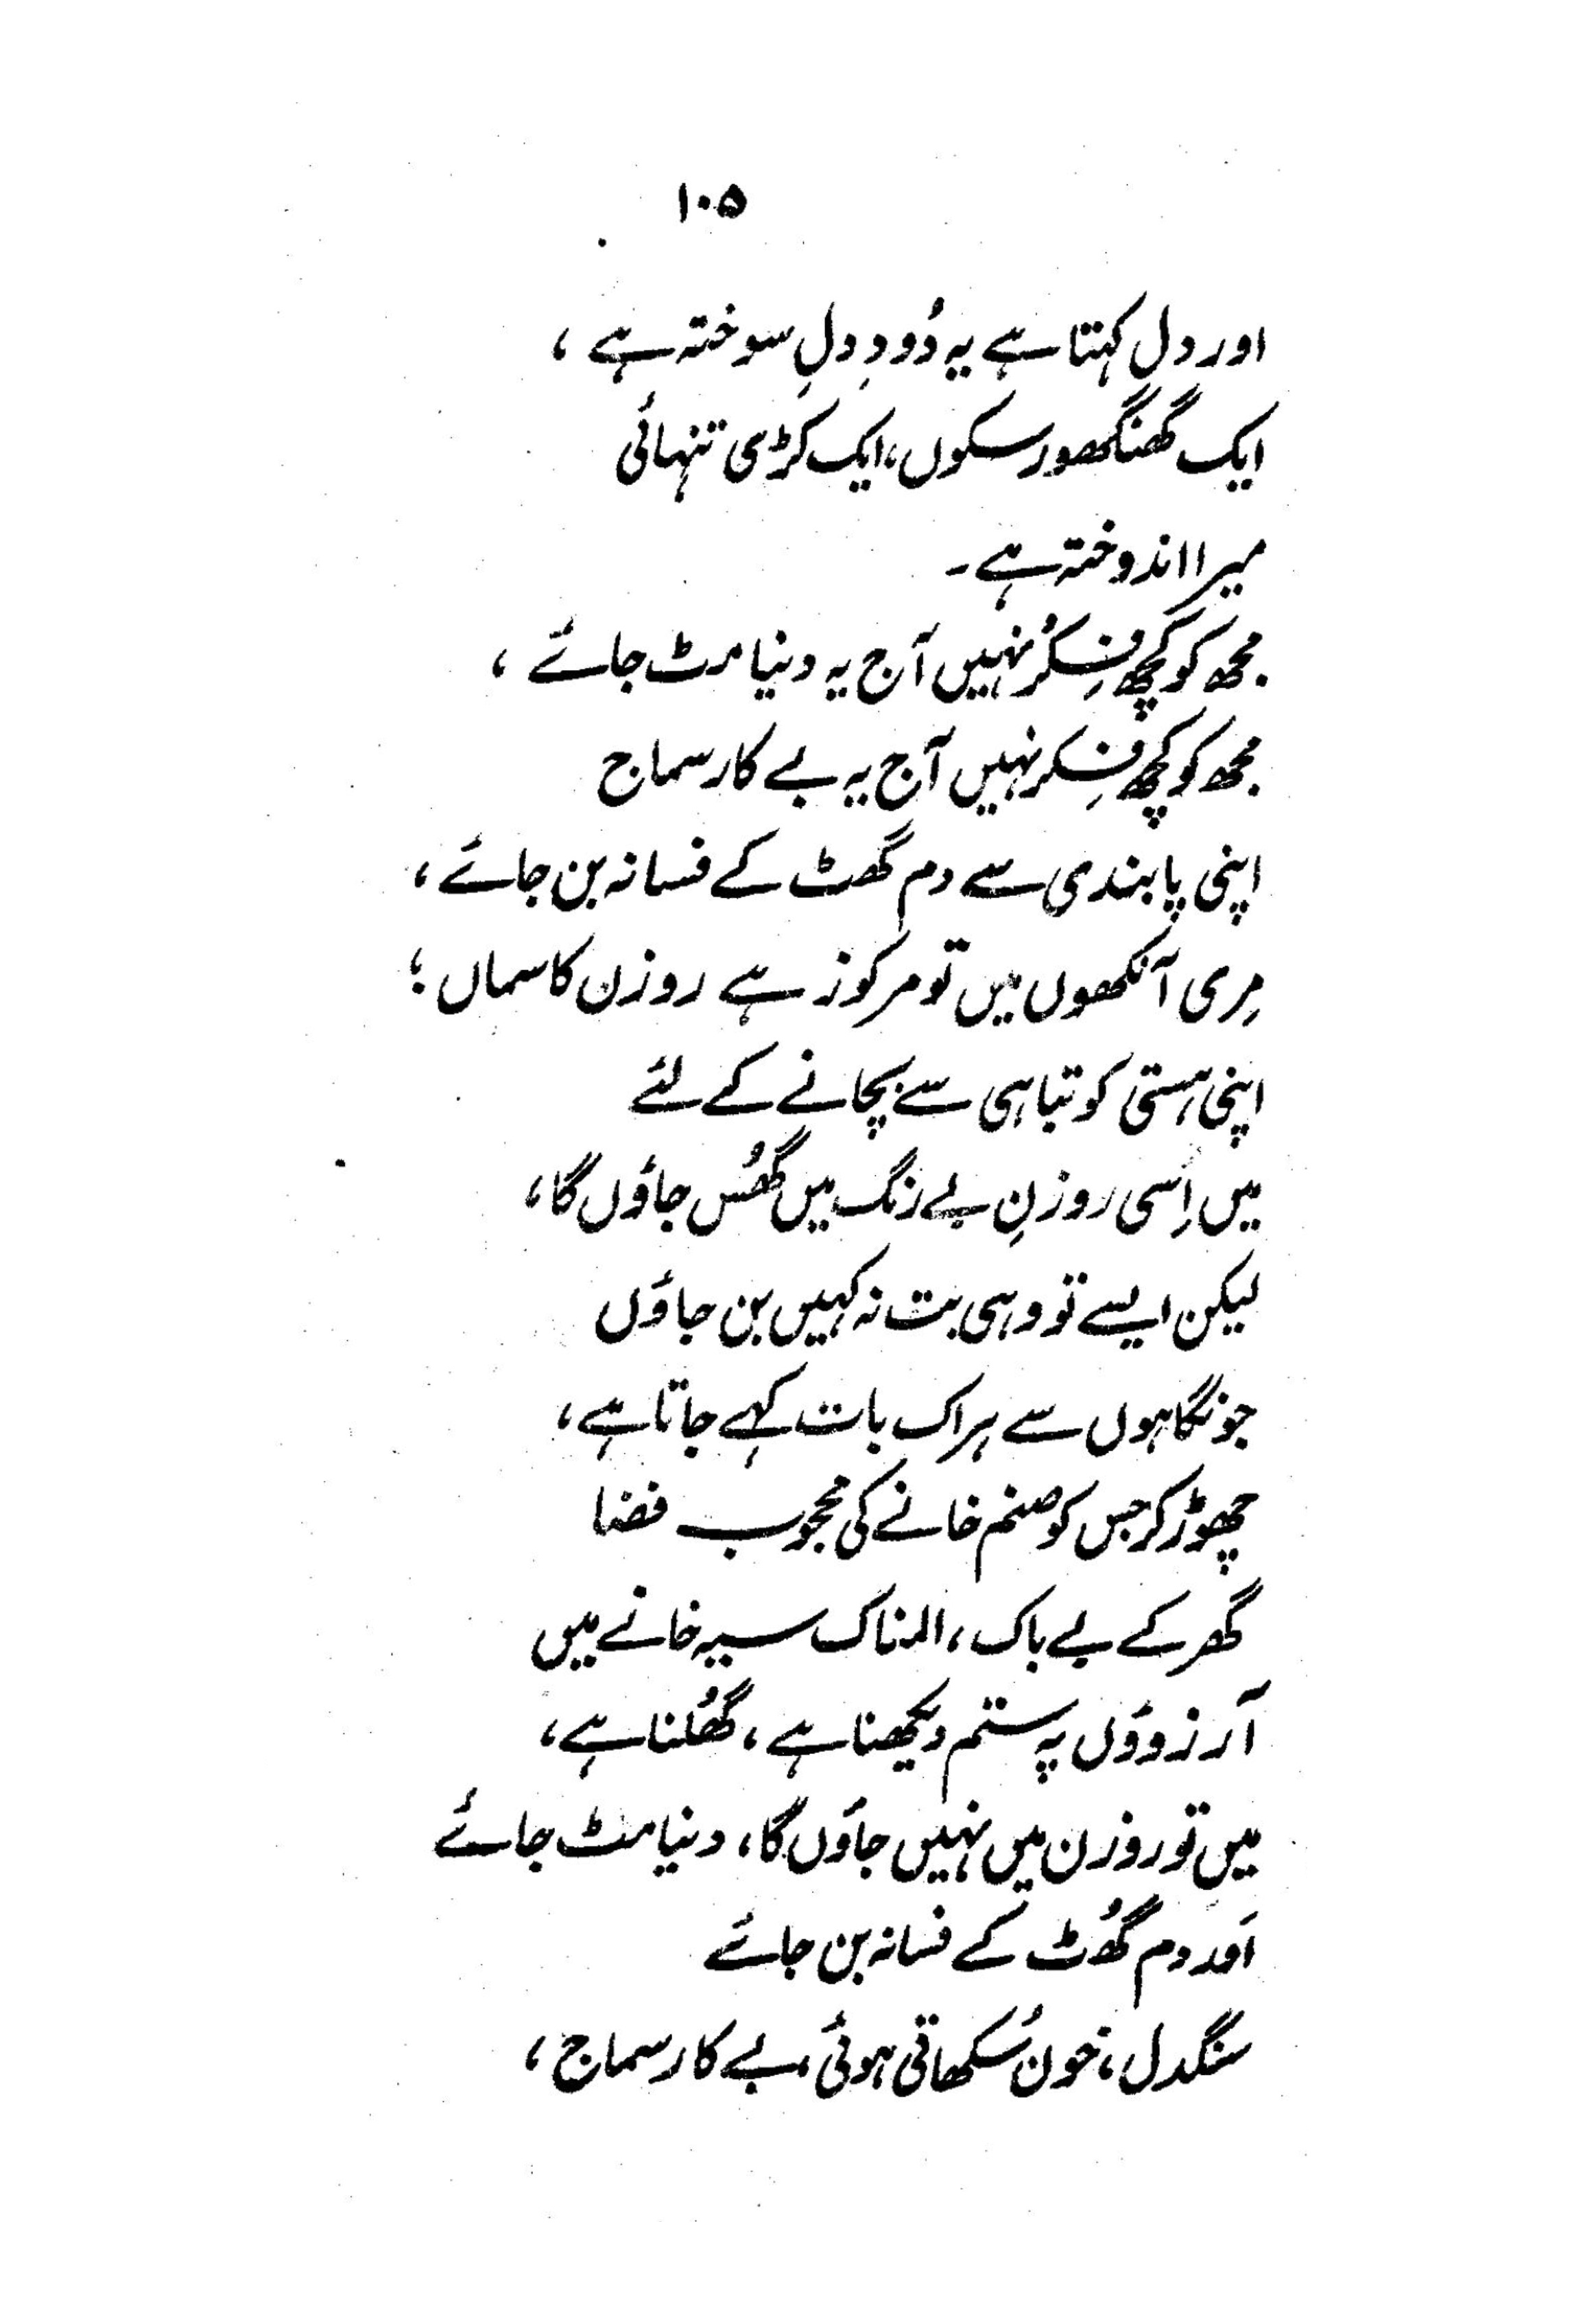 ۱۰۵
اور دل کہتا ہے یہ دُودِ دلِ سوختہ ہے ،
ایک گھنگھور سکوں، ایک کڑی تنہائی
میرا اندوختہ ہے۔
مجھ کو کچھ فِکر نہیں آج یہ دنیا مٹ جائے ،
مجھ کو کچھ فِکر نہیں آج یہ بے کار سماج
اپنی پابندی سے دم گھٹ کے فسانہ بن جائے ،
مِری آنکھوں میں تو مرکوز ہے روزن کا سماں ؛
اپنی ہستی کو تباہی سے بچانے کے لئے
میں اِسی روزنِ بے رنگ میں گھُس جاؤں گا ،
لیکن ایسے تو وہی بت نہ کہیں بن جاؤں
جو نگاہوں سے ہر اک بات کہے جاتا ہے ،
چھوڑ کر جس کو صنم خانے کی محجوب فضا
گھر کے بے باک، المناک سیہ خانے میں
آرزوؤں پہ ستم دیکھنا ہے ، گھُلنا ہے ،
میں تو روزن میں نہیں جاؤں گا، دنیا مٹ جائے
اَور دم گھُٹ کے فسانہ بن جائے
سنگدل، خون سُکھاتی ہوئی، بے کار سماج ،